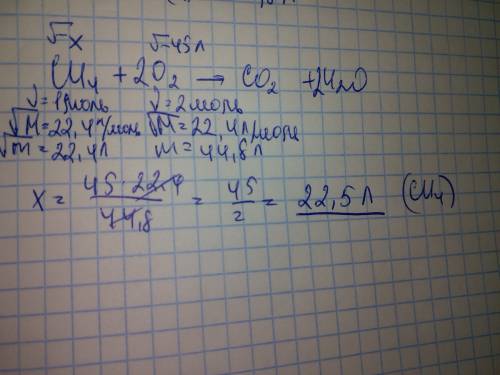 V-x V-45л
CH4 + 2O2 → CO2 + 2H2O
ν=1моль ν=2моль
VM=22,4л/моль VM=22,4л/моль
Vm=22,4л m=44,8л
x = 45·22,4/44,8 = 45/2 = 22,5л (CH4)